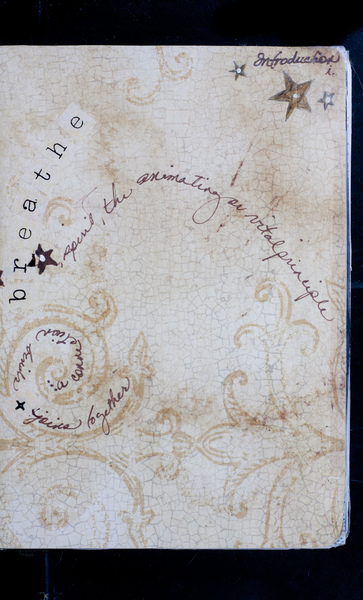 Introduction
i.
breathe
spirit, the animating or vital principle
a connection
joins together